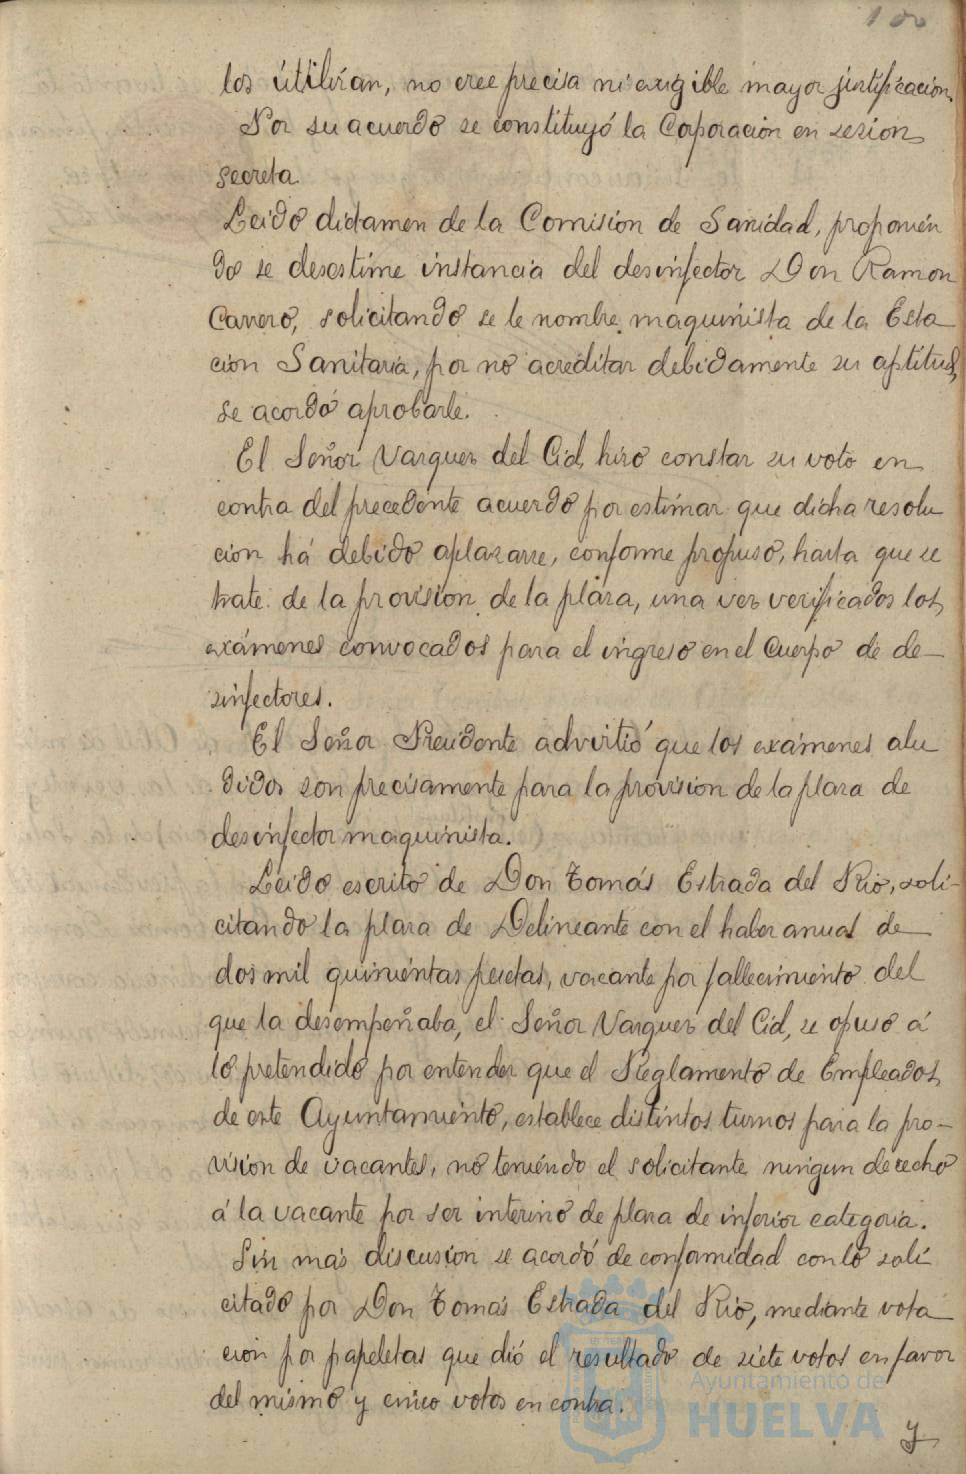 100
los útilizan, no cree precisa ni exigible mayor justificación.
Por su acuerdo se constituyó la Corporación en sesion
secreta.
Leido dictamen de la Comisión de Sanidad, proponien
do se desestime instancia del desinfector Don Ramon
Carrero, solicitando se le nombre maquinista de la Esta
ción Sanitaria, por no acreditar debidamente su aptitud,
se acordó aprobarle.
El Señor Vazquez del Cid, hizo constar su voto en
contra del precedente acuerdo por estimar que dicha resolu
cion há debido aplazarse, conforme propuso, hasta que se
trate de la provision de la plaza, una vez verificados los
exámenes convocados para el ingreso en el Cuerpo de de-
sinfectores.
El Señor Presidente advirtió que los exámenes alu
didos son precisamente para la provision de la plaza de
desinfector maquinista.
Leido escrito de Don Tomás Estrada del Rio, soli-
citando la plaza de Delineante con el haber anual de
dos mil quinientas pesetas, vacante por fallecimiento del
que la desempeñaba, el Señor Vazquez del Cid, se opuso á
lo pretendido por entender que el Reglamento de Empleados
de este Ayuntamiento, establece distintos turnos para la pro-
visión de vacantes, no teniendo el solicitante ningun derecho
á la vacante por ser interino de plaza de inferior categoria.
Sin mas discusion se acordó de conformidad con lo soli
citado por Don Tomás Estrada del Rio, mediante vota
cion por papeletas que dió el resultado de siete votos en favor
del mismo y cinco votos en contra.
Ayuntamiento de
HUELVA
y